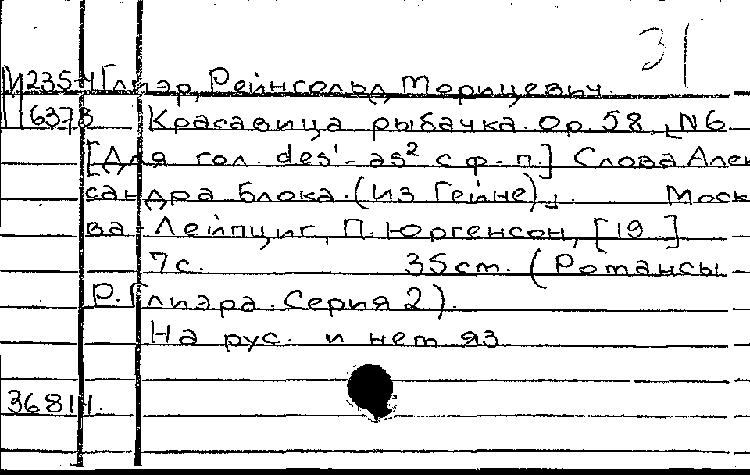 31
М 235-4 Глиэр, Рейнгольд Морицевич.
637в Красавица рыбачка. Op. 58, N6
[Для гол. des'-as² с ф-п.] Слова Алек
сандра Блока. (Из Гейне).
Моск
ва-Лейпциг, П. Юргенсон, [19 ]
7с. 35см. (Романсы
Р. Глиэра. Серия 2).
На рус. и нем яз
36814.